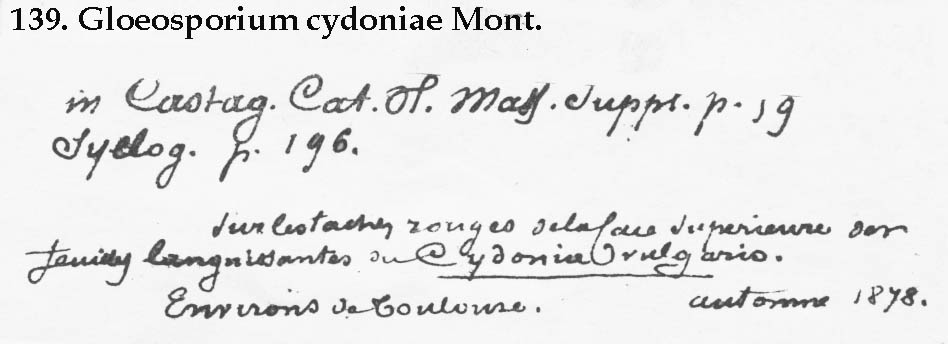 139. Gloeosporium cydoniae Mont.
in Castag. Cat. Pl. Mass. Suppl. p. 19
Syllog. p. 196.
Sur les taches rouges de la face superieure des
feuilles languissantes du Cydonia vulgaris.
Environs de Toulouse. automne 1878.